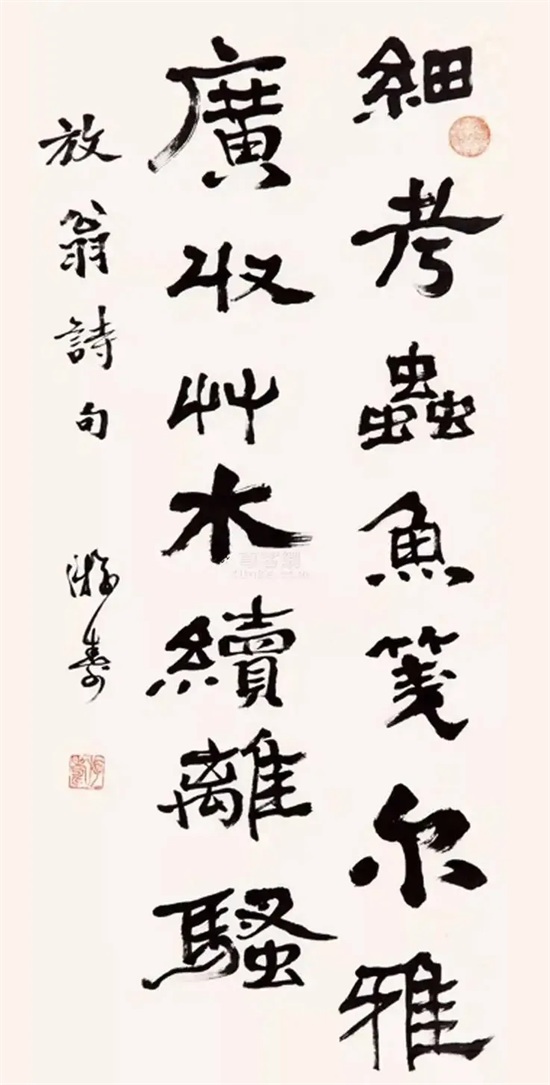 細考蟲魚箋尔雅
廣收艸木續離騷
放翁詩句
游壽